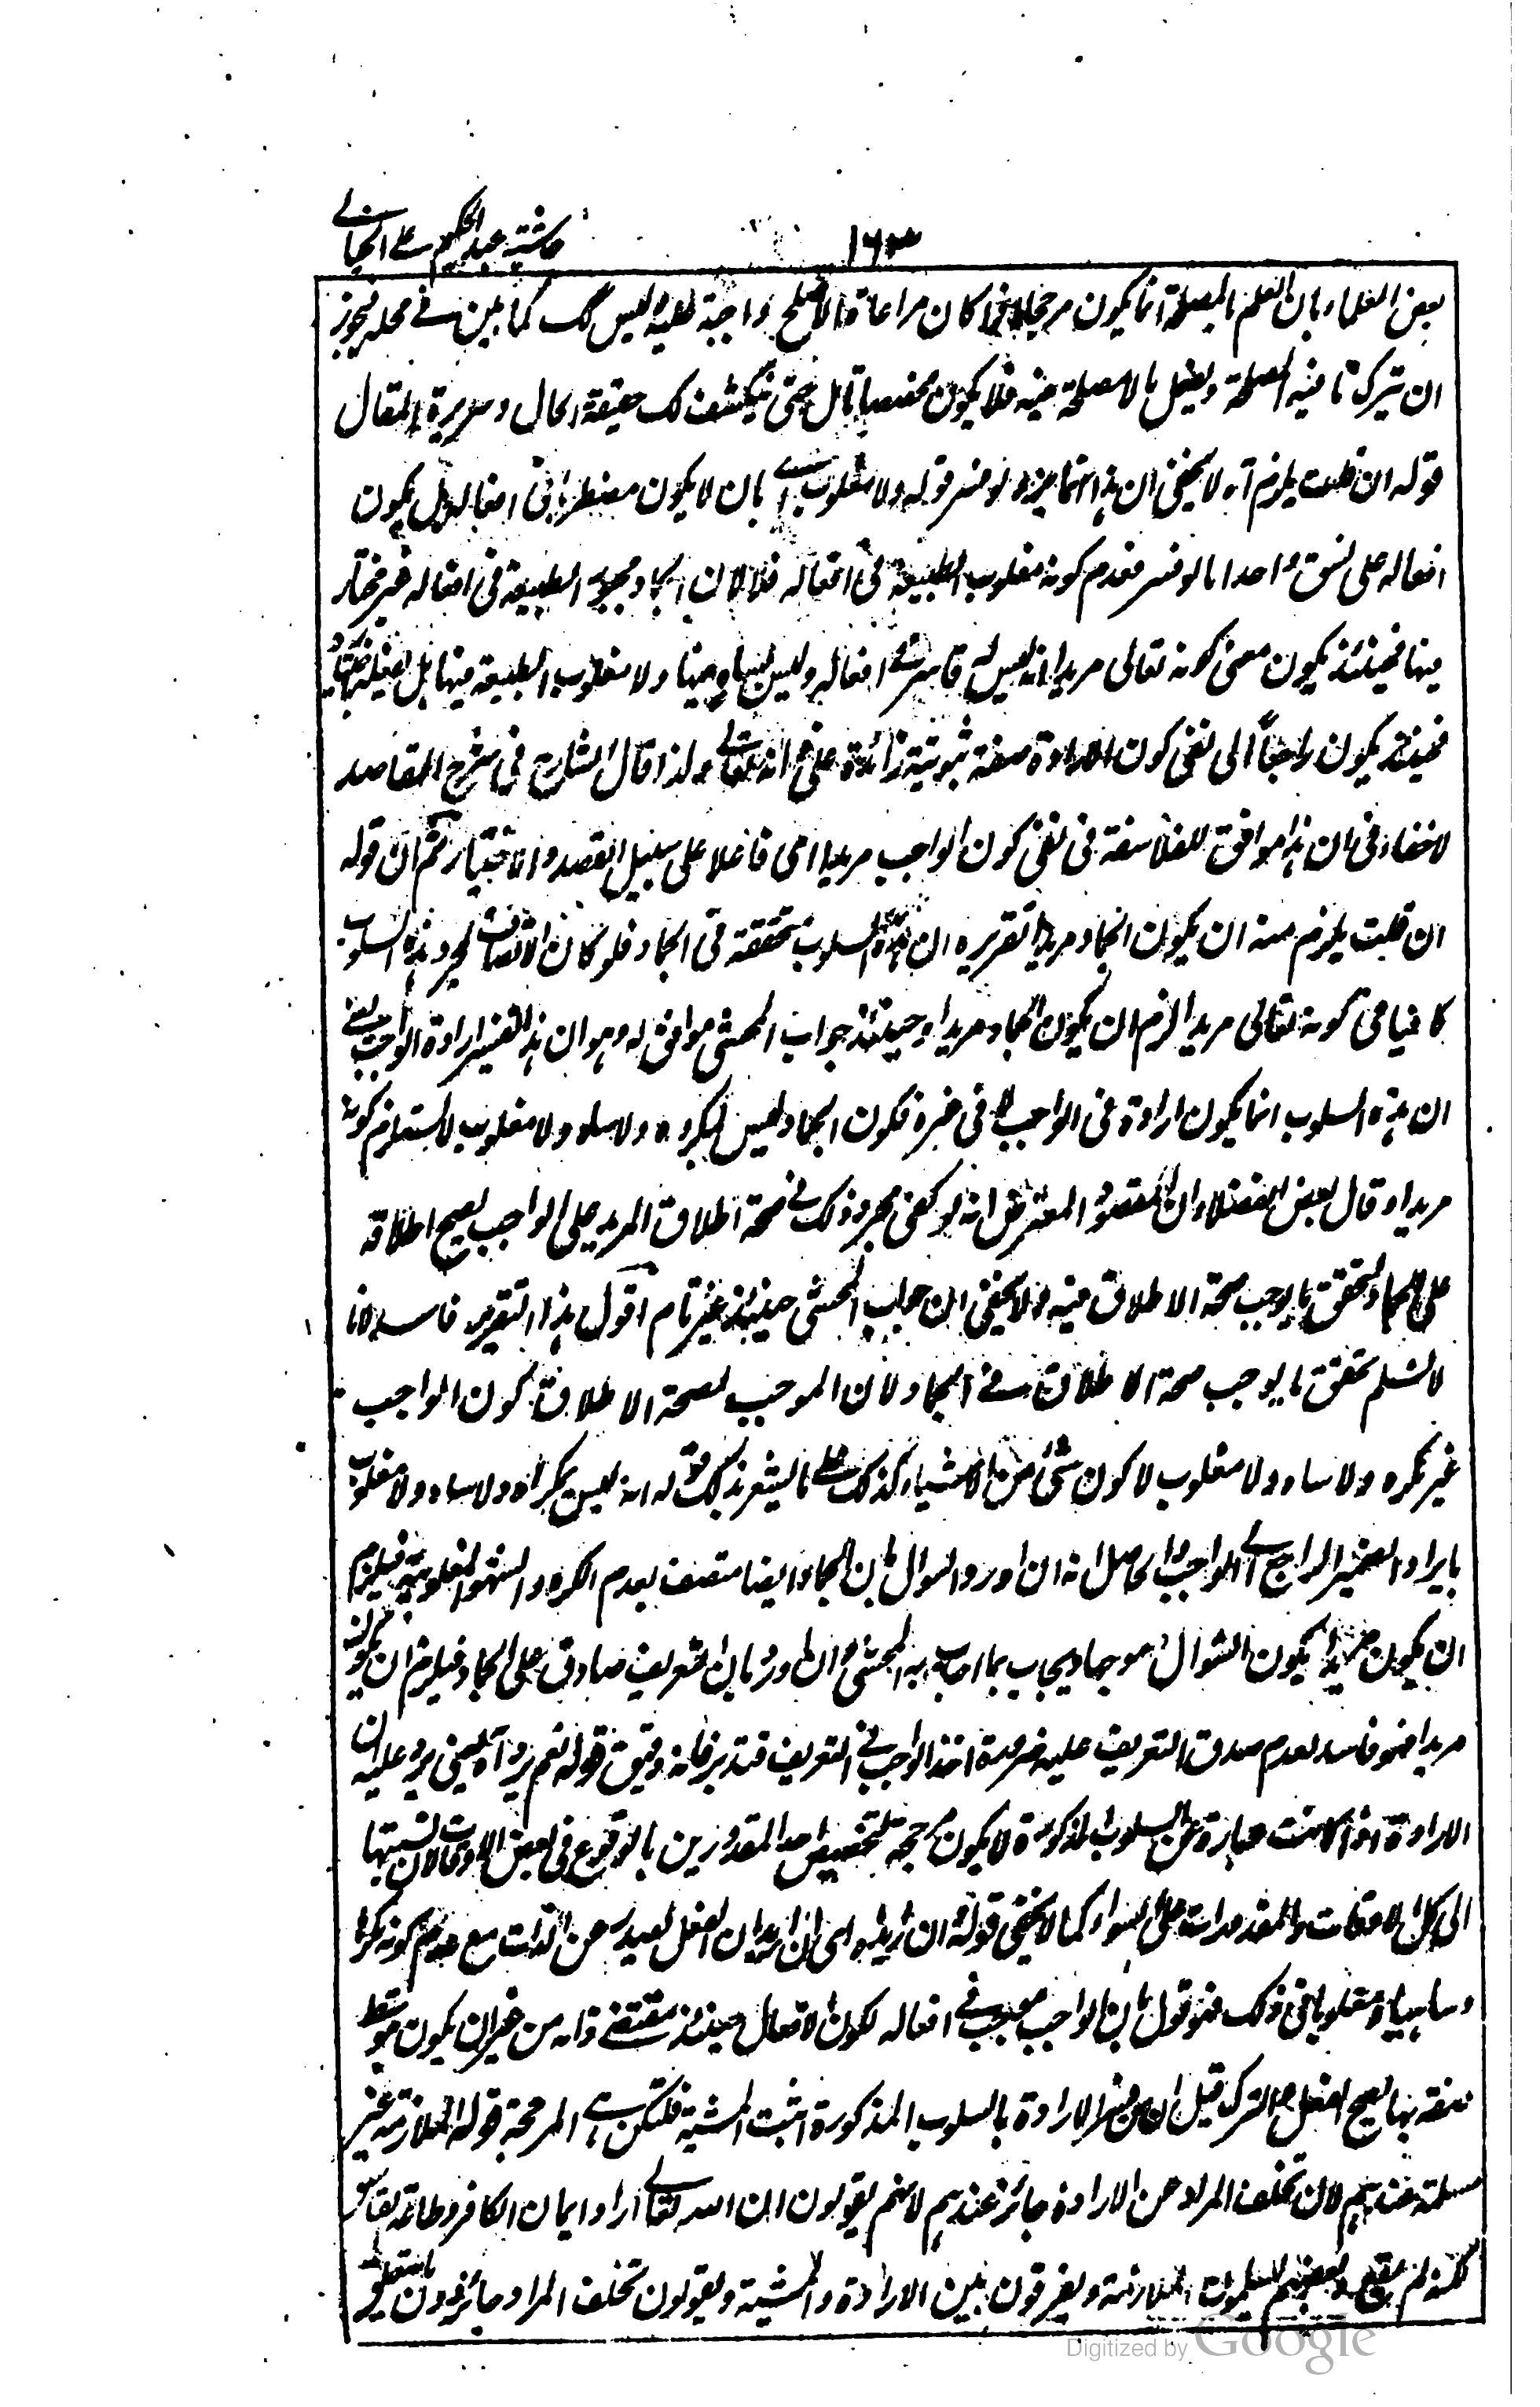 حاشية عبد الحكيم على الخيالي
١٦٣
بعض العلماء بان العلم بالمصلحة انما يكون مرجحا اذا كان مراعاة الاصلح واجبة عليه وليس كك كما بين فى محله فيجوز
ان يترك ما فيه المصلحة ويفعل ما لا مصلحة فيه فلا يكون مخصصا تأمل حتى ينكشف لك حقيقة الحال وسريرة المقال
قوله ان قلت يلزم آه لا يخفى ان هذا انما يرد لو فسر قوله ولا مغلوب اى بان لا يكون مضطربا فى افعاله بل يكون
افعاله على نسق واحد اما لو فسر بعدم كونه مغلوب الطبيعة فى افعاله فلا لان الجماد مجبور الطبيعة فى افعاله غير مختار
فيها فحينئذ يكون معنى كونه تعالى مريدا انه ليس له قاسر فى افعاله وليس بساه فيها ولا مغلوب الطبيعة فيها بل يفعلها
فحينئذ يكون راجعا الى نفى كون الارادة صفة ثبوتية زائدة على ذاته تعالى ولذا قال الشارح فى شرح المقاصد
لا خفاء فى ان هذا موافق للفلاسفة فى نفى كون الواجب مريدا اى فاعلا على سبيل القصد والاختيار ثم ان قوله
ان قلت يلزم منه ان يكون الجماد مريدا تقريره ان هذه السلوب متحققة فى الجماد فلو كان الاتصاف بمجرد هذه السلوب
كافيا فى كونه تعالى مريدا لزم ان يكون الجماد مريدا وحينئذ جواب المحشى موافق له وهو ان هذا تفسير ارادة الواجب يعنى
ان هذه السلوب انما يكون ارادة فى الواجب لا فى غيره فكون الجماد ليس بمكره ولا ساه ولا مغلوب لا يستلزم كونه
مريدا وقال بعض الفضلاء ان المقصود المعترض انه لو كفى مجرد ذلك فى صحة اطلاق المريد على الواجب يصح اطلاقه
على الجماد لتحقق ما يوجب صحة الاطلاق فيه ولا يخفى ان جواب المحشى حينئذ غير تام اقول هذا التقرير فاسد لانا
لا نسلم تحقق ما يوجب صحة الاطلاق فى الجماد لان الموجب لصحة الاطلاق كون الواجب
غير مكره ولا ساه ولا مغلوب لا كون شئ من الاشياء كذلك على ما يشعر بذلك قوله انه ليس بمكره ولا ساه ولا مغلوب
بايراد الضمير الراجع الى الواجب والحاصل انه ان اورد السوال بان الجماد ايضا متصف بعدم الكره والسهو والمغلوبية فيلزم
ان يكون مريدا يكون السوال موجها ويجاب بما اجاب به المحشى وان اورد بان التعريف صادق على الجماد فيلزم ان يكون
مريدا فهو فاسد لعدم صدق التعريف عليه ضرورة اخذ الواجب فى التعريف فتدبر فانه دقيق قوله نعم يرد آه يعنى يرد عليه ان
الارادة اذا كانت عبارة عن السلوب المذكورة لا يكون مرجحة لتخصيص احد المقدورين بالوقوع فى بعض الاوقات لان نسبتها
الى كل الاوقات والمقدورات على السواء كما لا يخفى قوله ان اريد اى ان اريد ان الفعل يصدر عن الذات مع عدم كونه مكرها
وساهيا ومغلوبا فى ذلك فهو قول بان الواجب موجب فى افعاله لكون الافعال حينئذ مقتضى ذاته من غير ان يكون بتوسط
صفة بها يصح الفعل والترك قيل ان من فسر الارادة بالسلوب المذكورة اثبت المشية فلتكن هى المرجحة قوله الملازمة غير
مسلمة عندهم لان تخلف المراد عن الارادة جائز عندهم لانهم يقولون ان الله تعالى اراد ايمان الكافر وطاعة الفاسق
لكنه لم يقع وبعضهم يسلمون الملازمة ويفرقون بين الارادة والمشية ويقولون تخلف المراد جائز دون
Digitized by Google